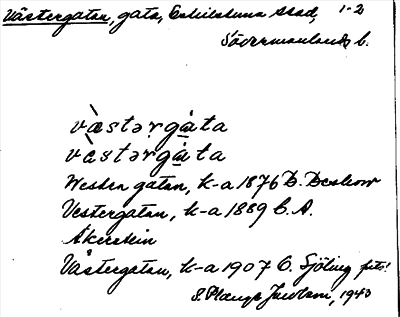 Västergatan, gata, Eskilstuna stad, 1-2
Södermanlands l.
væ̀stərgàta
væ̀stərgàta
Western gatan, k-a 1876 D.
Vestergatan, k-a 1889 C. A.
Åkerstein
Västergatan, k-a 1907 C. Sjöling
S. 1943